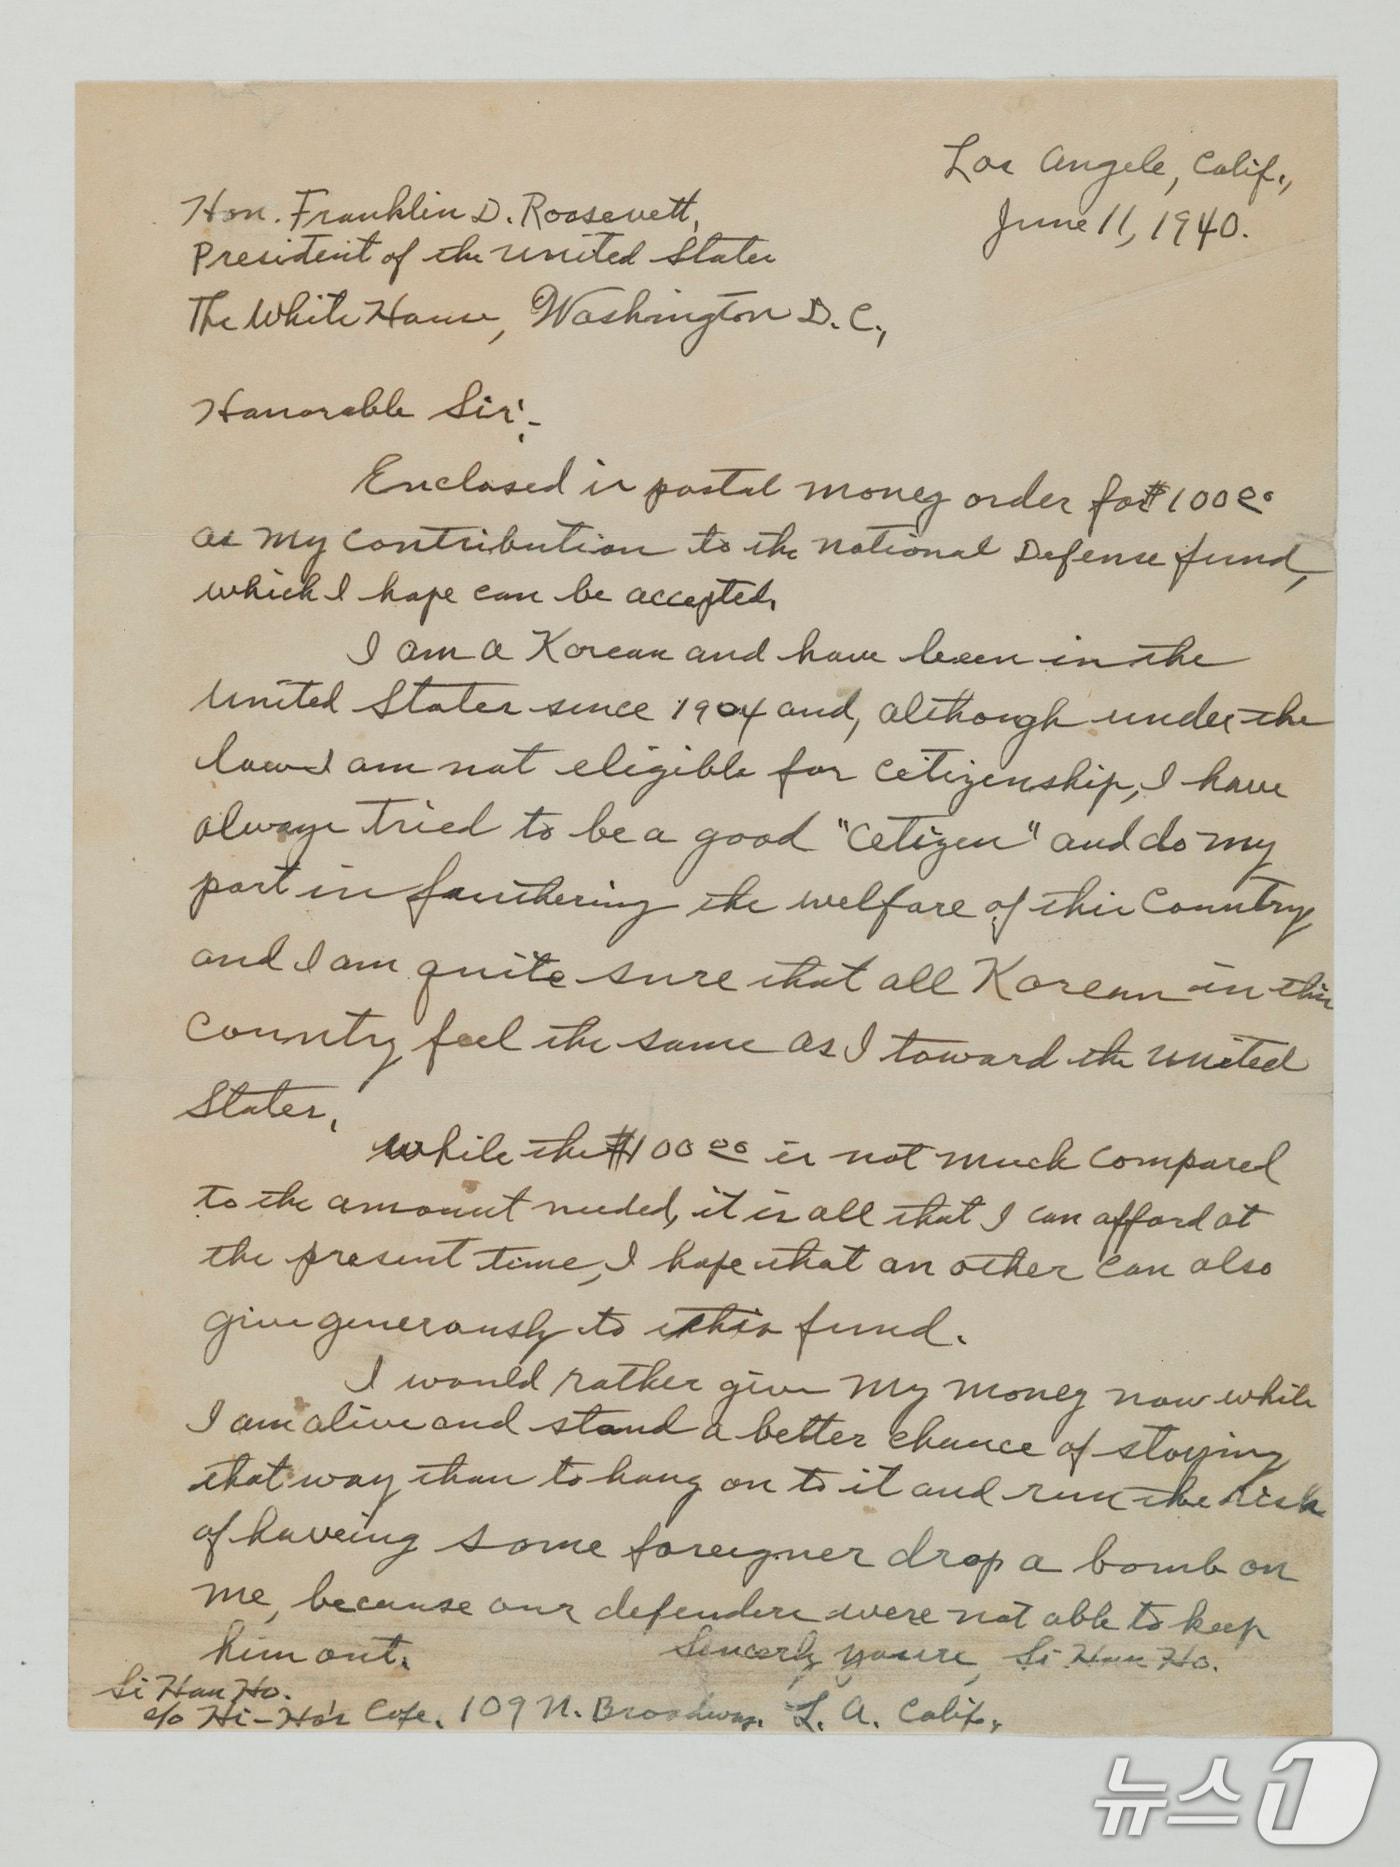 Los Angele, Calif.,
June 11, 1940.
Hon. Franklin D. Roosevett,
President of the United States
The White House, Washington D.C.,
Honorable Sir:-
Enclosed is postal money order for $100.00
as my contribution to the national Defense fund,
which I hope can be accepted.
I am a Korean and have been in the
United States since 1904 and, although under the
laws I am not eligible for cetizenship, I have
always tried to be a good "cetizen" and do my
part in fauthering the welfare of this Country
and I am quite sure that all Korean in this
country feel the same as I toward the United
States.
While the $100.00 is not much compared
to the amount needed, it is all that I can afford at
the present time, I hope that an other can also
give generously to this fund.
I would rather give my money now while
I am alive and stand a better chance of staying
that way than to hang on to it and run the risk
of haveing some foreigner drop a bomb on
me, because our defenders were not able to keep
him out.
Sincerly yours, Si Han Ho.
Si Han Ho.
c/o Hi-Ho's Cafe. 109 N. Broadway. L. A. Calif.
뉴스1